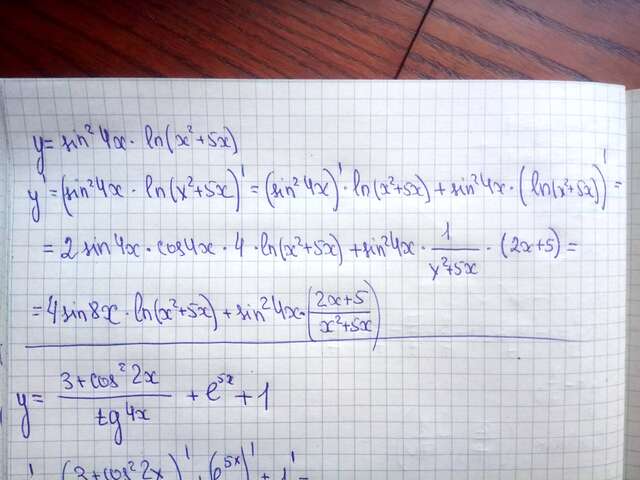 y = sin²4x · ln(x²+5x)
y' = (sin²4x · ln(x²+5x))' = (sin²4x)' · ln(x²+5x) + sin²4x · (ln(x²+5x))' =
= 2 sin4x · cos4x · 4 · ln(x²+5x) + sin²4x · 1/(x²+5x) · (2x+5) =
= 4 sin8x · ln(x²+5x) + sin²4x · ((2x+5)/(x²+5x))
y = (3+cos²2x)/(tg4x) + e^5x + 1